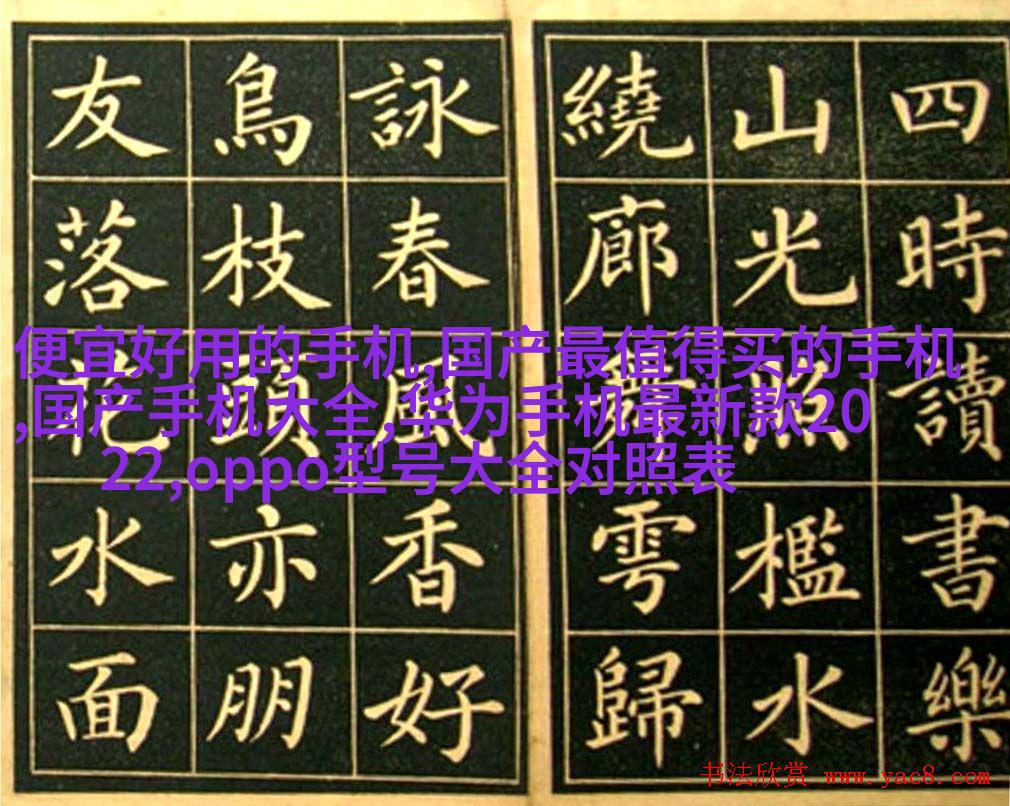 四時讀書樂
山光照檻水
繞廊舞雩歸
詠春風香好
鳥枝頭亦朋
友落花水面
便宜好用的手机,国产最值得买的手机
,国产手机大全,华为手机最新款20
22,oppo型号大全对照表
书法欣赏 www.yac8.com